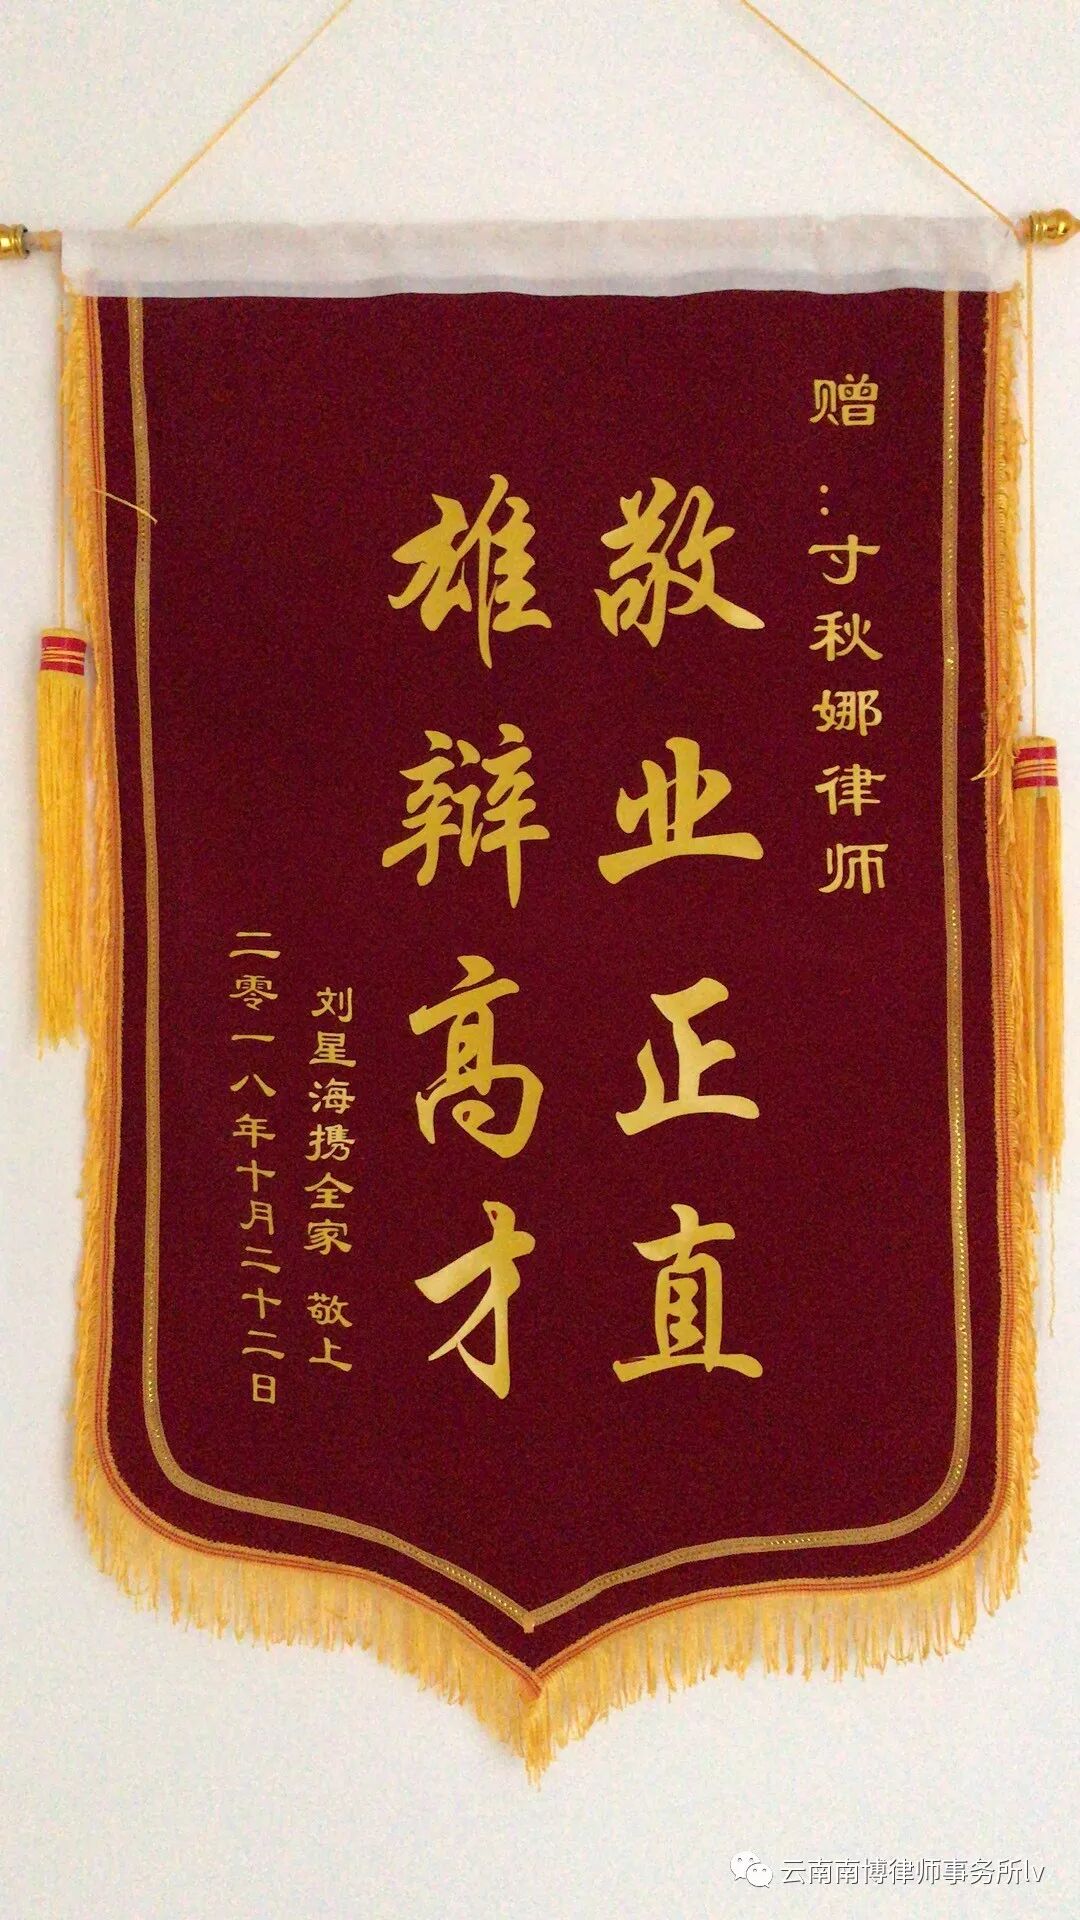 赠:寸秋娜律师
敬业正直
雄辩高才
刘星海携全家 敬上
二零一八年十月二十二日
云南南博律师事务所lv